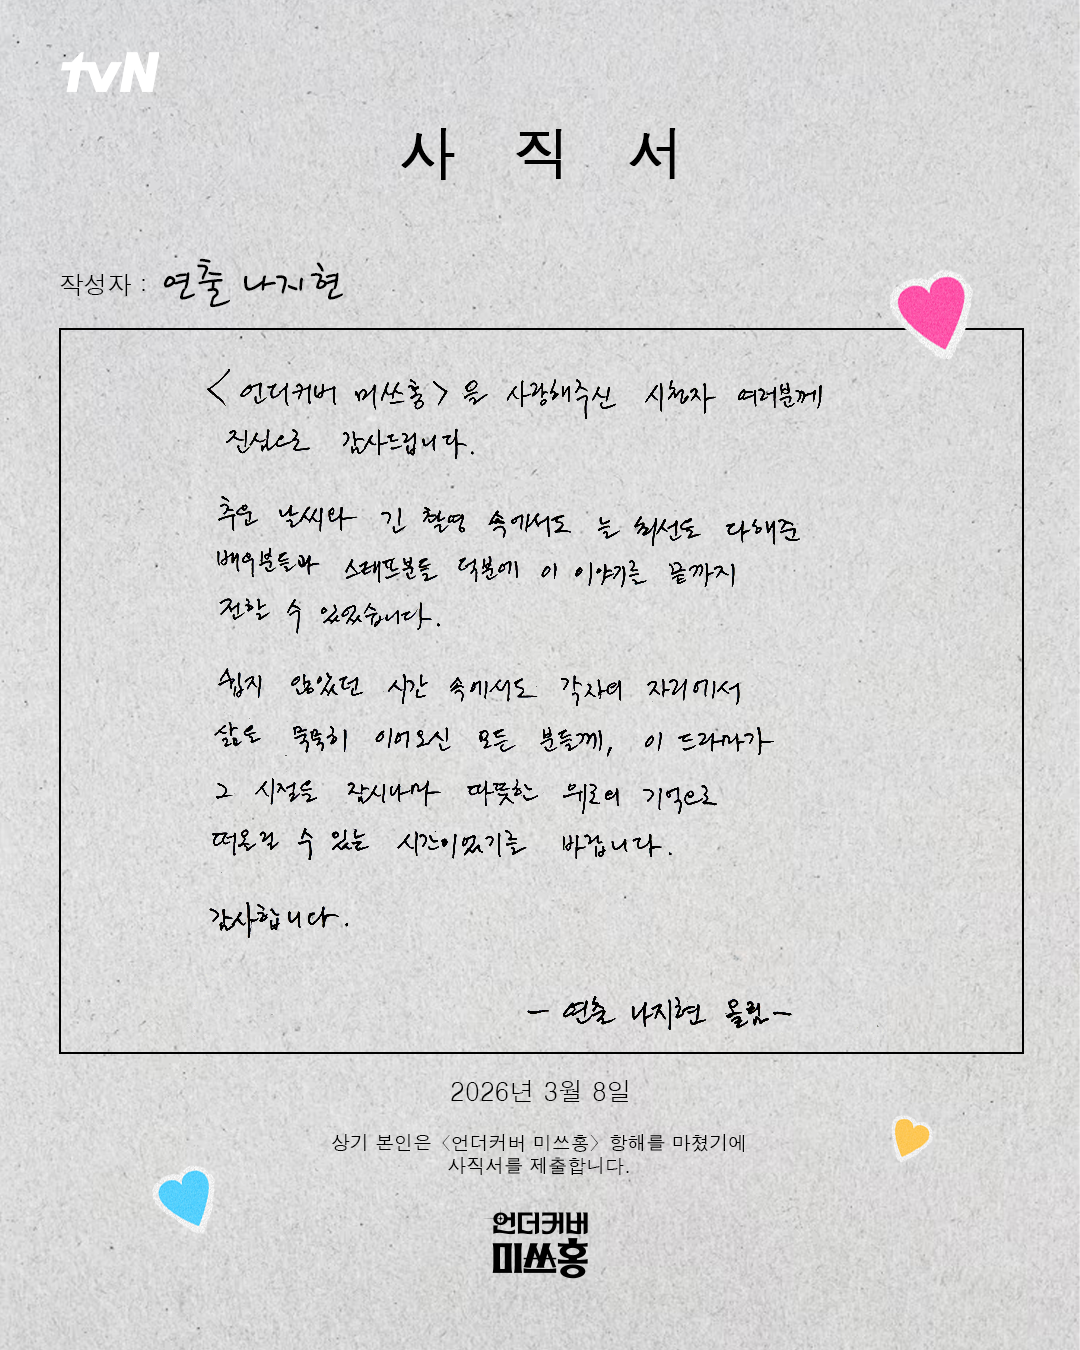 tvN
사 직 서
작성자 : 연출 나지현
<언더커버 미쓰홍>을 사랑해주신 시청자 여러분께
진심으로 감사드립니다.
추운 날씨와 긴 촬영 속에서도 늘 최선을 다해준
배우분들과 스태프분들 덕분에 이 이야기를 끝까지
전할 수 있었습니다.
쉽지 않았던 시간 속에서도 각자의 자리에서
삶을 묵묵히 이어오신 모든 분들께, 이 드라마가
그 시절을 잠시나마 따뜻한 위로의 기억으로
떠올릴 수 있는 시간이었기를 바랍니다.
감사합니다.
- 연출 나지현 올림 -
2026년 3월 8일
상기 본인은 〈언더커버 미쓰홍〉 항해를 마쳤기에
사직서를 제출합니다.
언더커버
미쓰홍